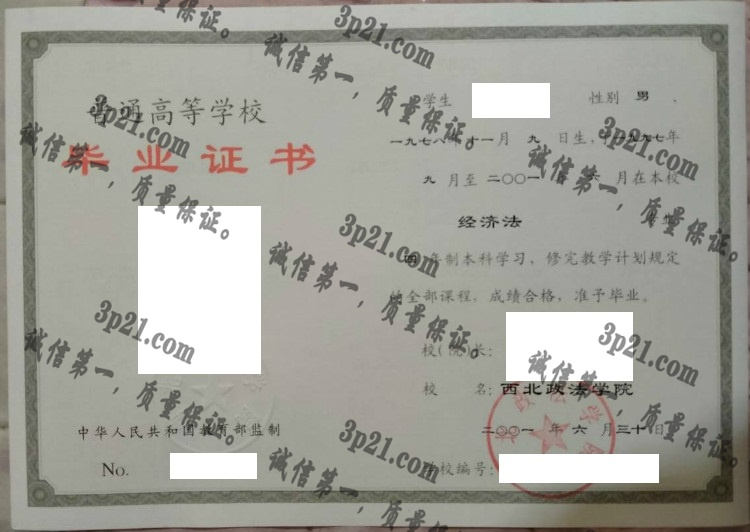 普通高等学校
毕业证书
中华人民共和国教育部监制
No.
学生 性别 男
一九七八年十一月 九 日生，一九九七年
九 月至 二〇〇一 年 六 月在本校
经济法 专业
四 年制本科学习，修完教学计划规定
的全部课程，成绩合格，准予毕业。
校（院）长：
校 名：西北政法学院
二〇〇一 年 六 月三十日
学校编号：
3p21.com
诚信第一，质量保证。
3p21.com
诚信第一，质量保证。
3p21.com
诚信第一，质量保证。
3p21.com
诚信第一，质量保证。
3p21.com
诚信第一，质量保证。
3p21.com
诚信第一，质量保证。
3p21.com
诚信第一，质量保证。
3p21.com
诚信第一，质量保证。